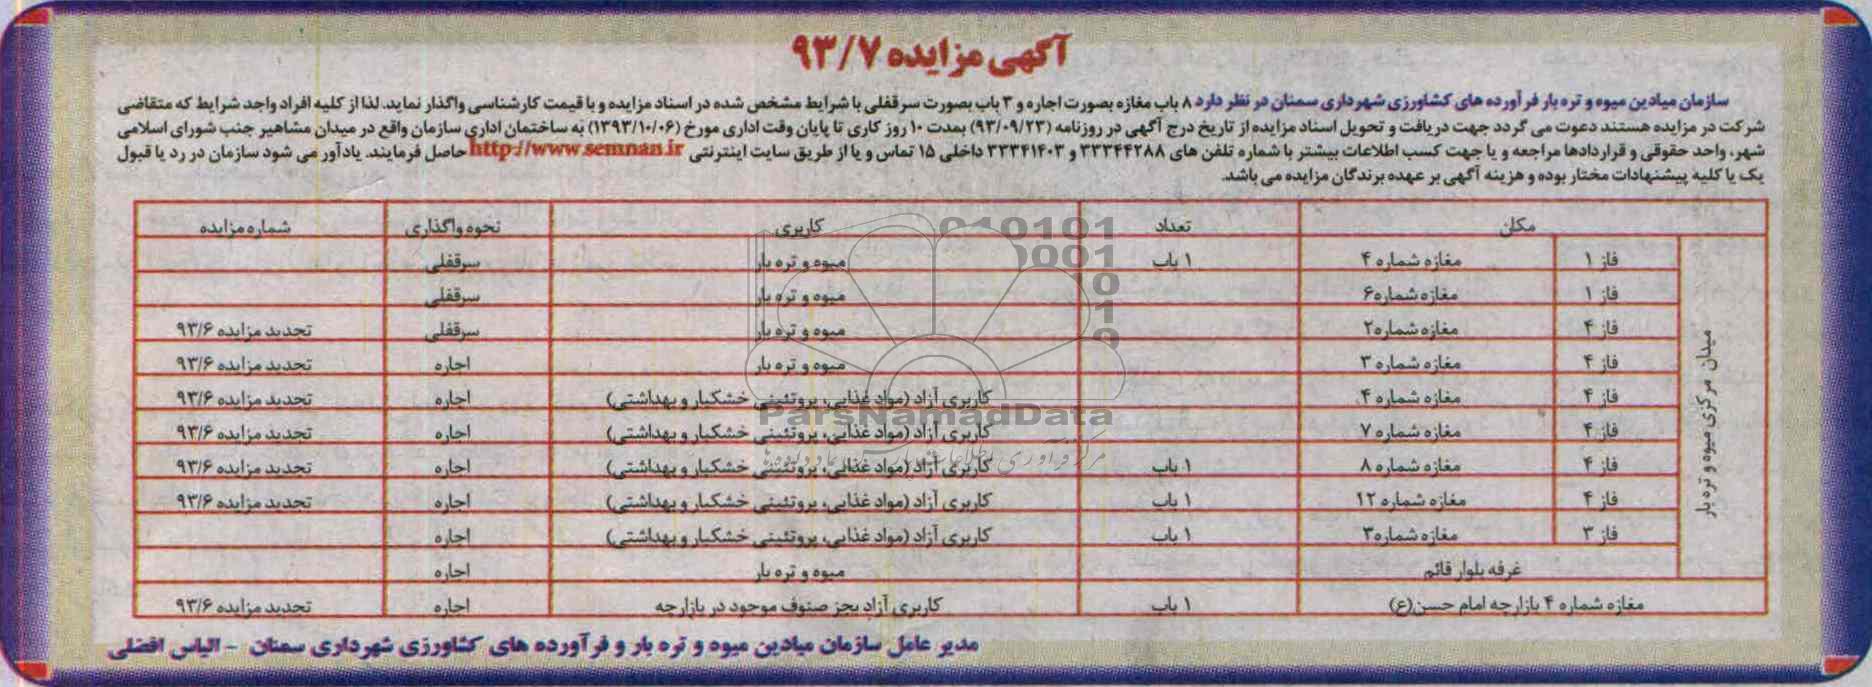 آگهی مزایده ۹۳/۷
سازمان میادین میوه و تره بار فرآورده های کشاورزی شهرداری سمنان در نظر دارد ۸ باب مغازه بصورت اجاره و ۳ باب بصورت سرقفلی با شرایط مشخص شده در اسناد مزایده و با قیمت کارشناسی واگذار نماید. لذا از کلیه افراد واجد شرایط که متقاضی
شرکت در مزایده هستند دعوت می گردد جهت دریافت و تحویل اسناد مزایده از تاریخ درج آگهی در روزنامه (۹۳/۰۹/۲۳) بمدت ۱۰ روز کاری تا پایان وقت اداری مورخ (۱۳۹۳/۱۰/۰۶) به ساختمان اداری سازمان واقع در میدان مشاهیر جنب شورای اسلامی
شهر، واحد حقوقی و قراردادها مراجعه و یا جهت کسب اطلاعات بیشتر با شماره تلفن های ۳۳۳۴۴۲۸۸ و ۳۳۳۴۱۴۰۳ داخلی ۱۵ تماس و یا از طریق سایت اینترنتی http://www.semnan.ir حاصل فرمایند. یادآور می شود سازمان در رد یا قبول
یک یا کلیه پیشنهادات مختار بوده و هزینه آگهی بر عهده برندگان مزایده می باشد.
مکان تعداد کاربری نحوه واگذاری شماره مزایده
میدان مرکزی میوه و تره بار
فاز ۱ مغازه شماره ۴ ۱ باب میوه و تره بار سرقفلی
فاز ۱ مغازه شماره ۶ میوه و تره بار سرقفلی
فاز ۴ مغازه شماره ۲ میوه و تره بار سرقفلی تجدید مزایده ۹۳/۶
فاز ۴ مغازه شماره ۳ میوه و تره بار اجاره تجدید مزایده ۹۳/۶
فاز ۴ مغازه شماره ۴ کاربری آزاد (مواد غذایی، پروتئینی خشکبار و بهداشتی) اجاره تجدید مزایده ۹۳/۶
فاز ۴ مغازه شماره ۷ کاربری آزاد (مواد غذایی، پروتئینی خشکبار و بهداشتی) اجاره تجدید مزایده ۹۳/۶
فاز ۴ مغازه شماره ۸ ۱ باب کاربری آزاد (مواد غذایی، پروتئینی خشکبار و بهداشتی) اجاره تجدید مزایده ۹۳/۶
فاز ۴ مغازه شماره ۱۲ ۱ باب کاربری آزاد (مواد غذایی، پروتئینی خشکبار و بهداشتی) اجاره تجدید مزایده ۹۳/۶
فاز ۳ مغازه شماره ۳ ۱ باب کاربری آزاد (مواد غذایی، پروتئینی خشکبار و بهداشتی) اجاره
غرفه بلوار قائم میوه و تره بار اجاره
مغازه شماره ۴ بازارچه امام حسن(ع) ۱ باب کاربری آزاد بجز صنوف موجود در بازارچه اجاره تجدید مزایده ۹۳/۶
مدیر عامل سازمان میادین میوه و تره بار و فرآورده های کشاورزی شهرداری سمنان - الیاس افضلی
ParsNamadData